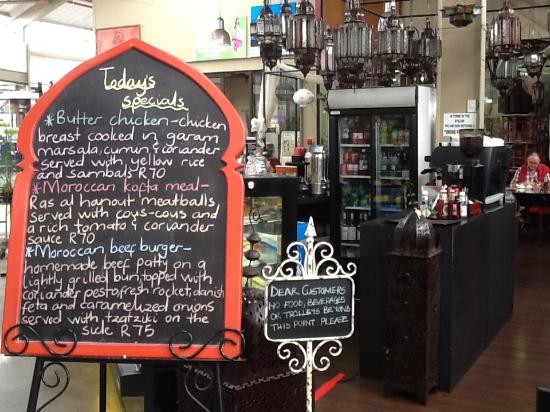 Today's
specials
*Butter chicken-chicken
breast cooked in garam
marsala, cumin & coriander
served with yellow rice
and sambals R70
*Moroccan kofta meal-
Ras al hanout meatballs,
served with cous-cous and
a rich tomato & coriander
sauce R70
*Moroccan beef burger-
homemade beef patty on a
lightly grilled bun, topped with
coriander pesto, fresh rocket, danish
feta and caramelized onions
served with tzatziki on the
side R75
DEAR CUSTOMERS
NO FOOD, BEVERAGES
OR TROLLEYS BEYOND
THIS POINT PLEASE